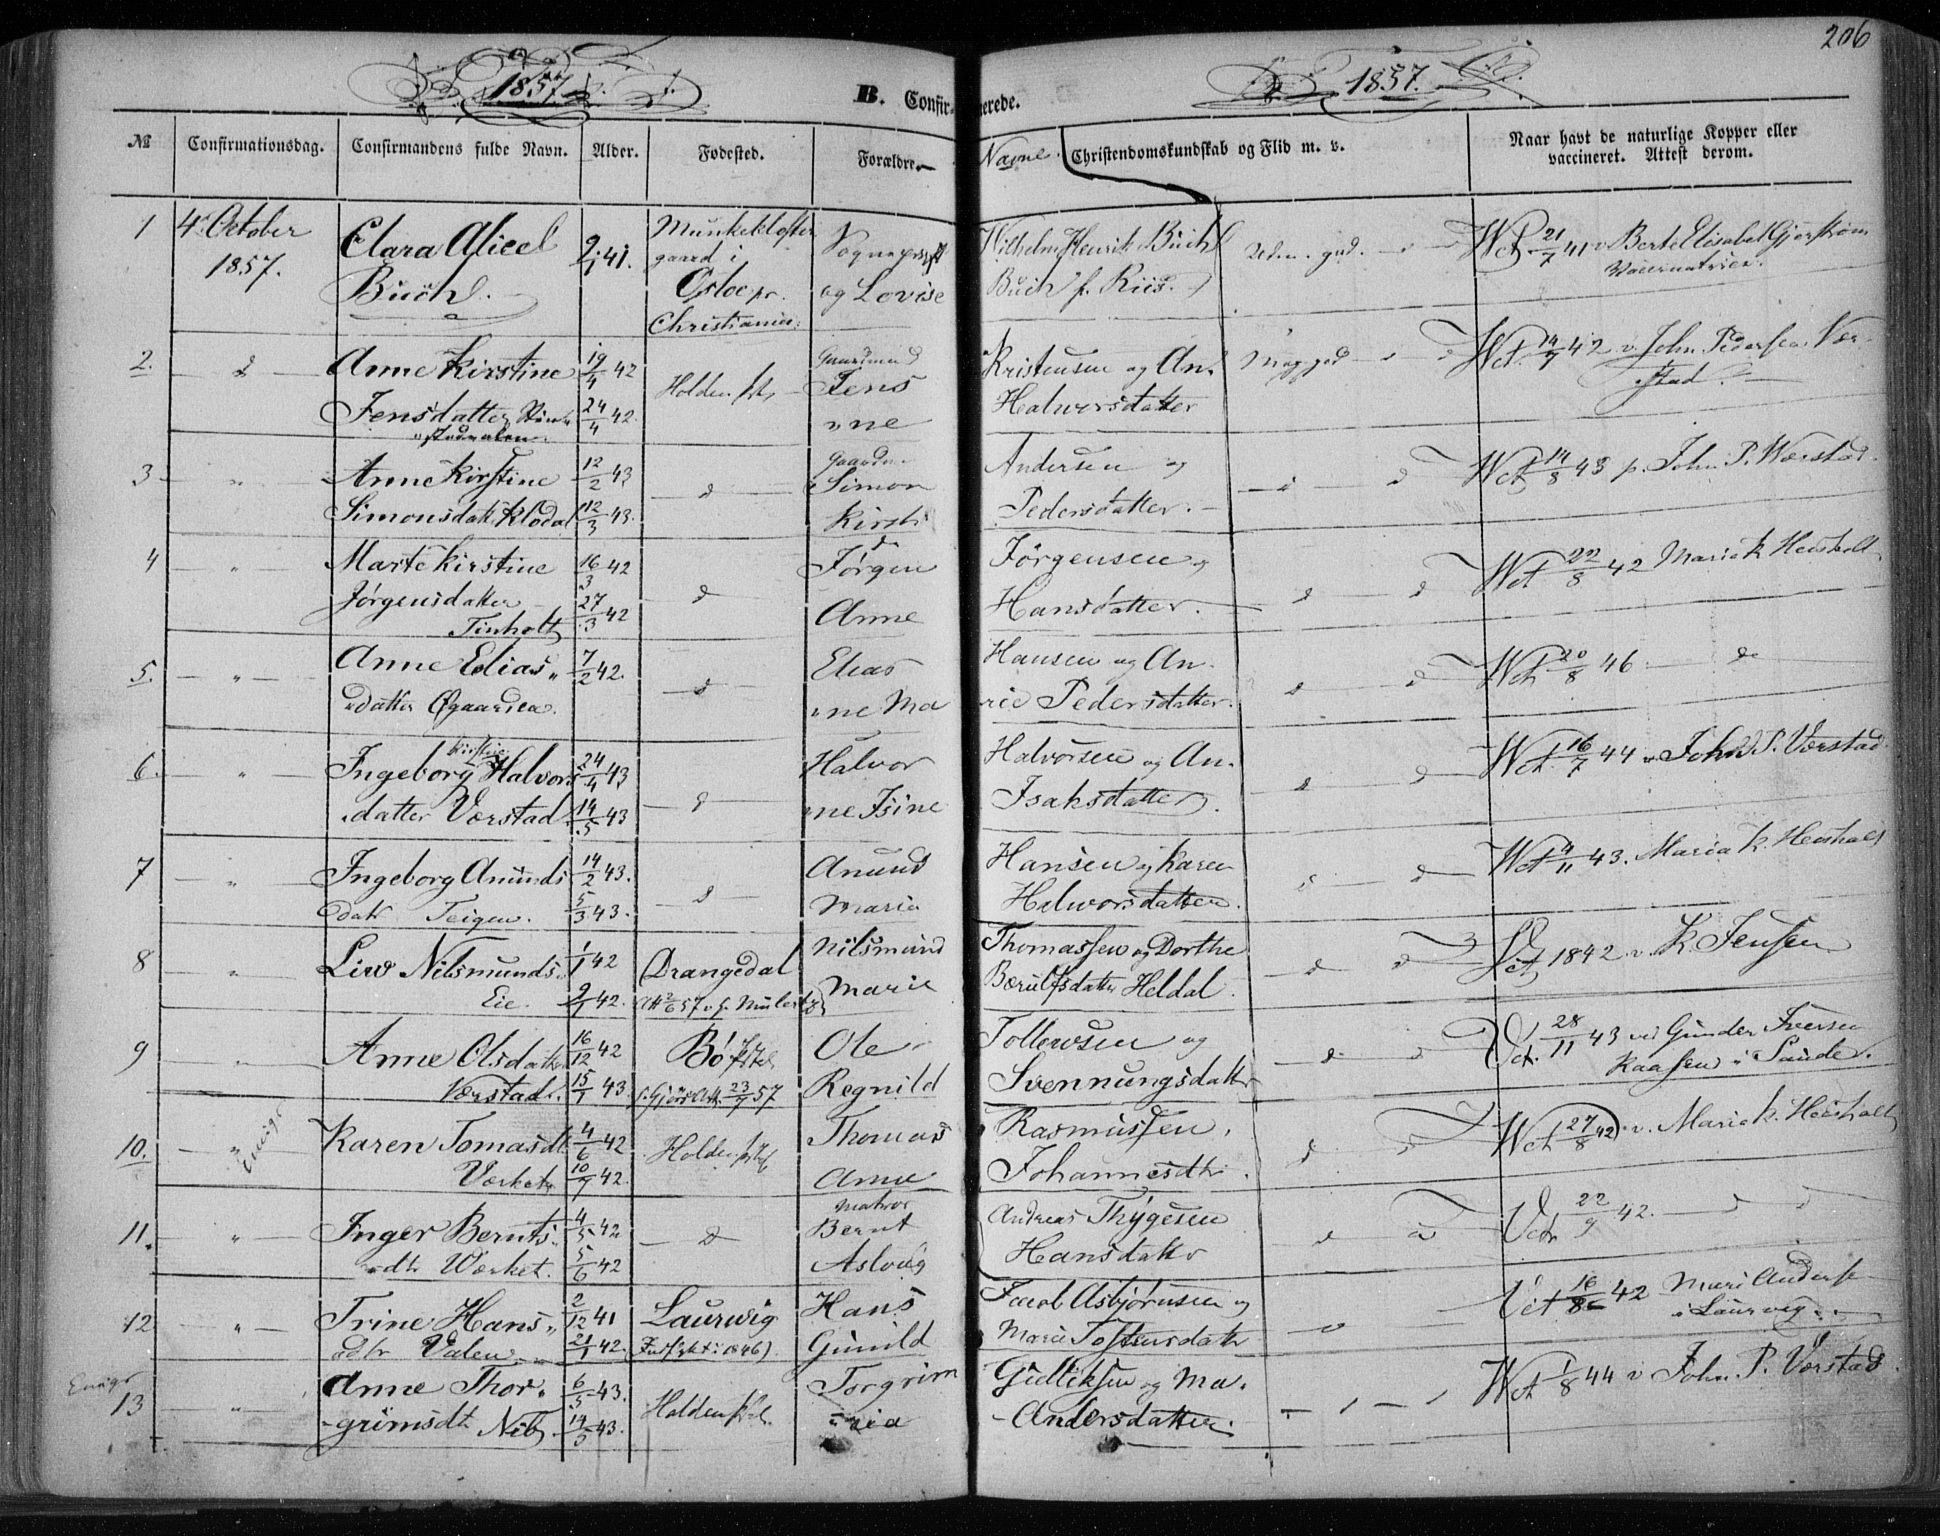 206
1857. B. Confirmerede. 1857.
№ Confirmationsdag. Confirmandens fulde Navn. Alder. Fødested. Forældre Navne. Christendomskundskab og Flid m. v. Naar havt de naturlige Kopper eller vaccineret. Attest derom.
1 4. October 1857. Clara Alicel 2/1 41. Munkekloster Sognepræst Wilhelm Henrik Büchl Udm. god. Vct 21/7 41 v Berte Elisabet Gjerstrøm
Büchl. gaard i Osloe pr. Christiania og Lovise Buch f. Riis.
2. d Anne Kirstine 19/4 42 Holden Gaardmand Jens Kristensen og An- Meg. god d Vct. 14/7 42 v. John Pedersen Vær-
Jensdatter 24/4 42. ne Halvorsdatter stad.
3 " Anne Kirstine 12/2 43 d Gaardm. Simon Andersen og d d Vct 14/8 43 p. John P. Værstad.
Simonsdatt. Klodal 12/3 43. Kirsti Pedersdatter.
4 " Marte Kirstine 16/3 42 d d Jørgen Jørgensen og d d Vct 22/8 42 Maria K. Heisholt
Jørgensdatter 27/3 42 Anne Hansdatter.
Tinholt
5. " Anne Elias- 7/2 42. d Elias Hansen og An- d d Vct 20/8 46 do
datter Øgaarden. ne Ma rie Pedersdatter.
6. " Ingeborg Kirstine Halvors 24/4 43 d Halvor Halvorsen og An- d d Vct. 16/7 44 v John P. Værstad
datter Værstad 14/5 43 ne Isine Isaksdatter.
7 " Ingeborg Anunds 14/2 43. d Anund Hansen og Karen d d Vct 4/11 43. Maria K. Heisholt
datr Teigen. 5/3 43. Maria Halvorsdatter.
8 " Liv Nilsmunds. 1/1 42 Drangedal Nilsmund Thomassen og Dorthe d d Vct 1842 v. K. Jensen
Eie. 9/1 42. Marie Bærulfsdatter Heldal.
9 " Anne Olsdatter 16/12 42 Bø Ole Tollevsen og d d Vct. 28/11 43 ved Gunder Iversen
Værstad. 15/1 43. Att. 23/9 57 Regnild Svennungsdatter Kaasen i Saude.
10. " Eneige Karen Tomasdtr 4/6 42 Holden Thomas Rasmussen d d Vct 27/8 42 v. Maria K. Heisholt
Værket 10/7 42. Anne Johannesdtr.
11. " Inger Bernts- 4/5 42 d Bernt Andreas Thygesen d d Vct 22/9 42. d d
dtr Værket. 5/6 42 Aslaug Hansdatter
12 " Trine Hans- 2/12 41 Laurvig Hans Jacob Asbjørnsen og d Vct 16/8 42 Mari Andersen
dtr Valen 21/1 42. (Indflyt. i 1846). Gunild Marie Tostensdatter i Laurvig.
13 Eneige " Anne Thor- 6/5 43. Holden Torgrim Gulliksen og Ma- Vct 1/8 44 v John P. Værstad.
grimsdtr Nib 14/5 43. ria Andersdatter.